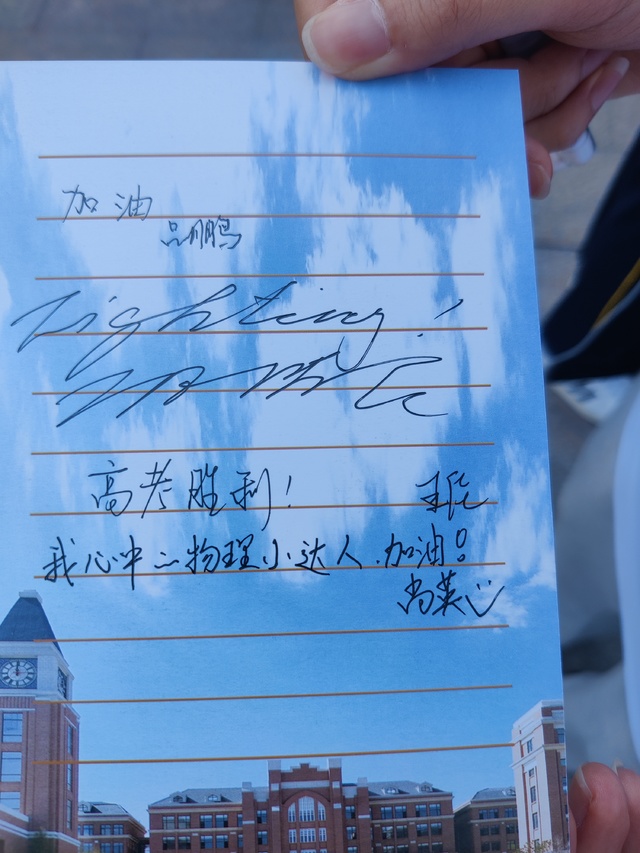 加油
品鹏
Fighting!
高考胜利!
我心中的物理小达人.加油!
尚英